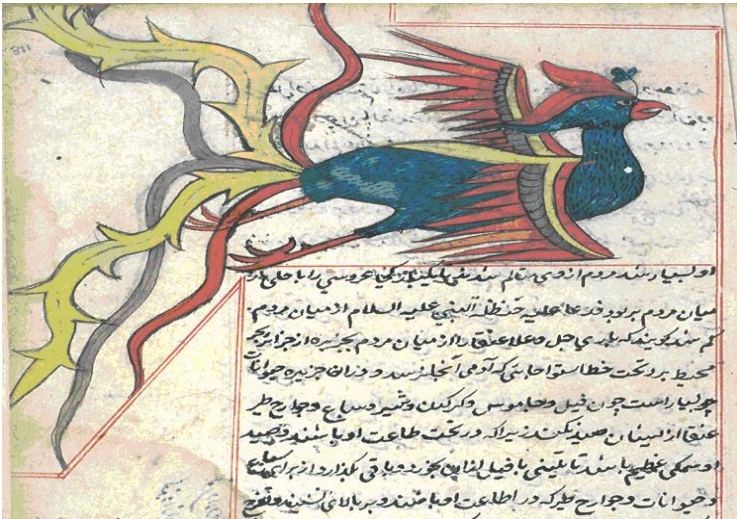 او بسیار شد مردم از وی متالم شدند تا عروسی را با حلی از
میان مردم بربود فدعا علیه حنظلة النبی علیه السلام از میان مردم
کم شد گویند که باری جل و علا عنقا را از میان مردم بجزیره از جزایر بحر
محیط برد تحت خط استوا جایی که آدمی آنجا نرسد و در آن جزیره حیوانات
بسیار است چون فیل و جاموس و کرکدن و شیر و سباع و جوارح طیر
عنقا از ایشان صید نکند زیرا که در تحت طاعت او باشند و صید
او سمکی عظیم باشد یا تنینی یا فیل از این بخورد و باقی بگذارد از برای سباع
و حیوانات و جوارح طیر که در اطاعت او باشند و بر بالای نشیند و تفرج